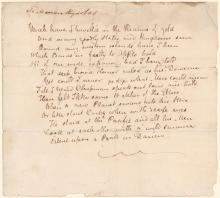 Much have I travell'd in the Realms of gold
And many goodly States, and Kingdoms seen
Round many western islands have I been
Which Bards in fealty to Apollo hold
Oft of one wide expanse had I been told
That deep brow'd Homer ruled as his Demesne
Yet could I never judge what Men could mean
Till I heard Chapman speak out loud and bold
Then felt I like some Watcher of the Skies
When a new Planet swims into his Ken
Or like stout Cortez when with eagle eyes
He star'd at the Pacific and all his Men
Look'd at each other with a wild surmise
Silent upon a Peak in Darien